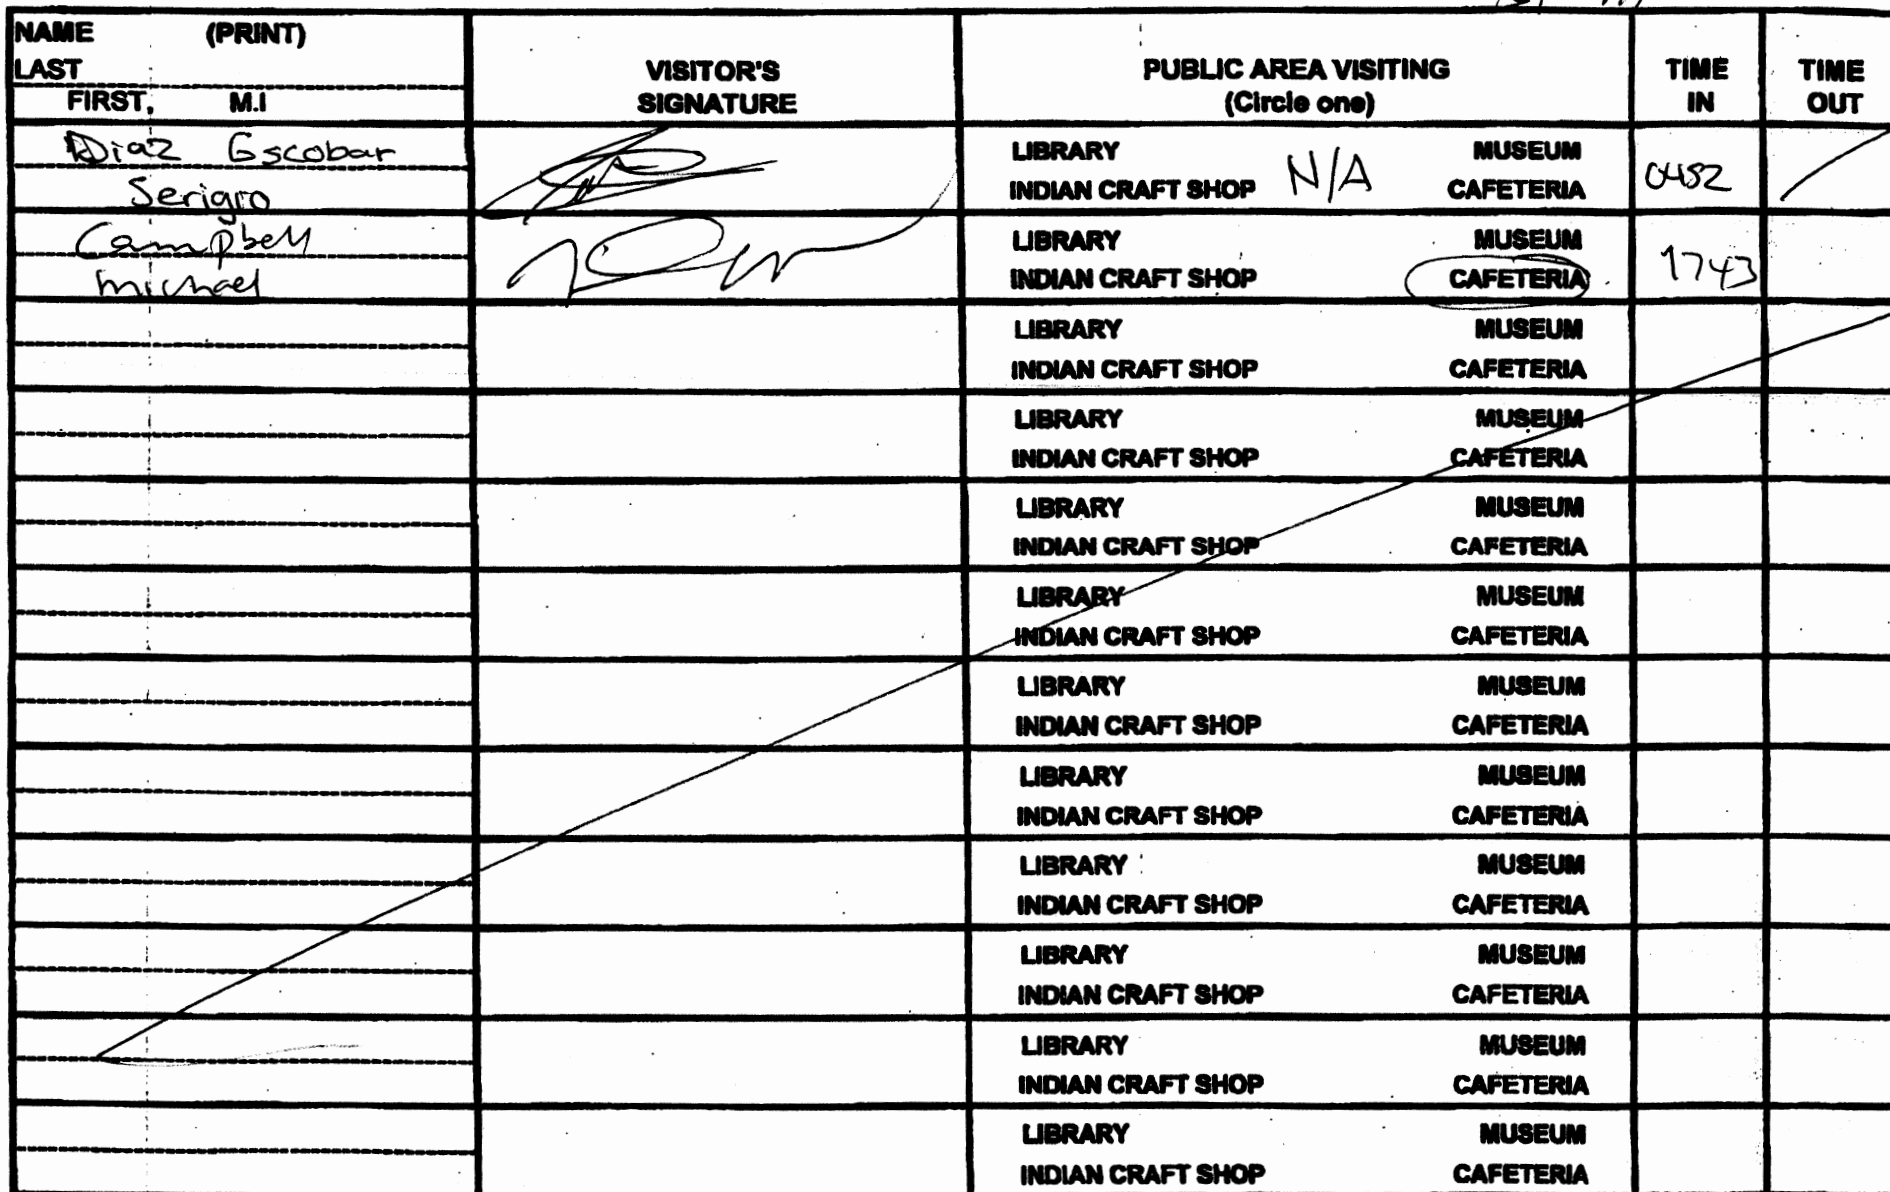 NAME (PRINT)
LAST
FIRST, M.I
VISITOR'S
SIGNATURE
PUBLIC AREA VISITING
(Circle one)
TIME
IN
TIME
OUT
Diaz Escobar
Serigro
LIBRARY MUSEUM
INDIAN CRAFT SHOP N/A CAFETERIA
0452
Campbell
michael
LIBRARY MUSEUM
INDIAN CRAFT SHOP CAFETERIA
1743
LIBRARY MUSEUM
INDIAN CRAFT SHOP CAFETERIA
LIBRARY MUSEUM
INDIAN CRAFT SHOP CAFETERIA
LIBRARY MUSEUM
INDIAN CRAFT SHOP CAFETERIA
LIBRARY MUSEUM
INDIAN CRAFT SHOP CAFETERIA
LIBRARY MUSEUM
INDIAN CRAFT SHOP CAFETERIA
LIBRARY MUSEUM
INDIAN CRAFT SHOP CAFETERIA
LIBRARY MUSEUM
INDIAN CRAFT SHOP CAFETERIA
LIBRARY MUSEUM
INDIAN CRAFT SHOP CAFETERIA
LIBRARY MUSEUM
INDIAN CRAFT SHOP CAFETERIA
LIBRARY MUSEUM
INDIAN CRAFT SHOP CAFETERIA